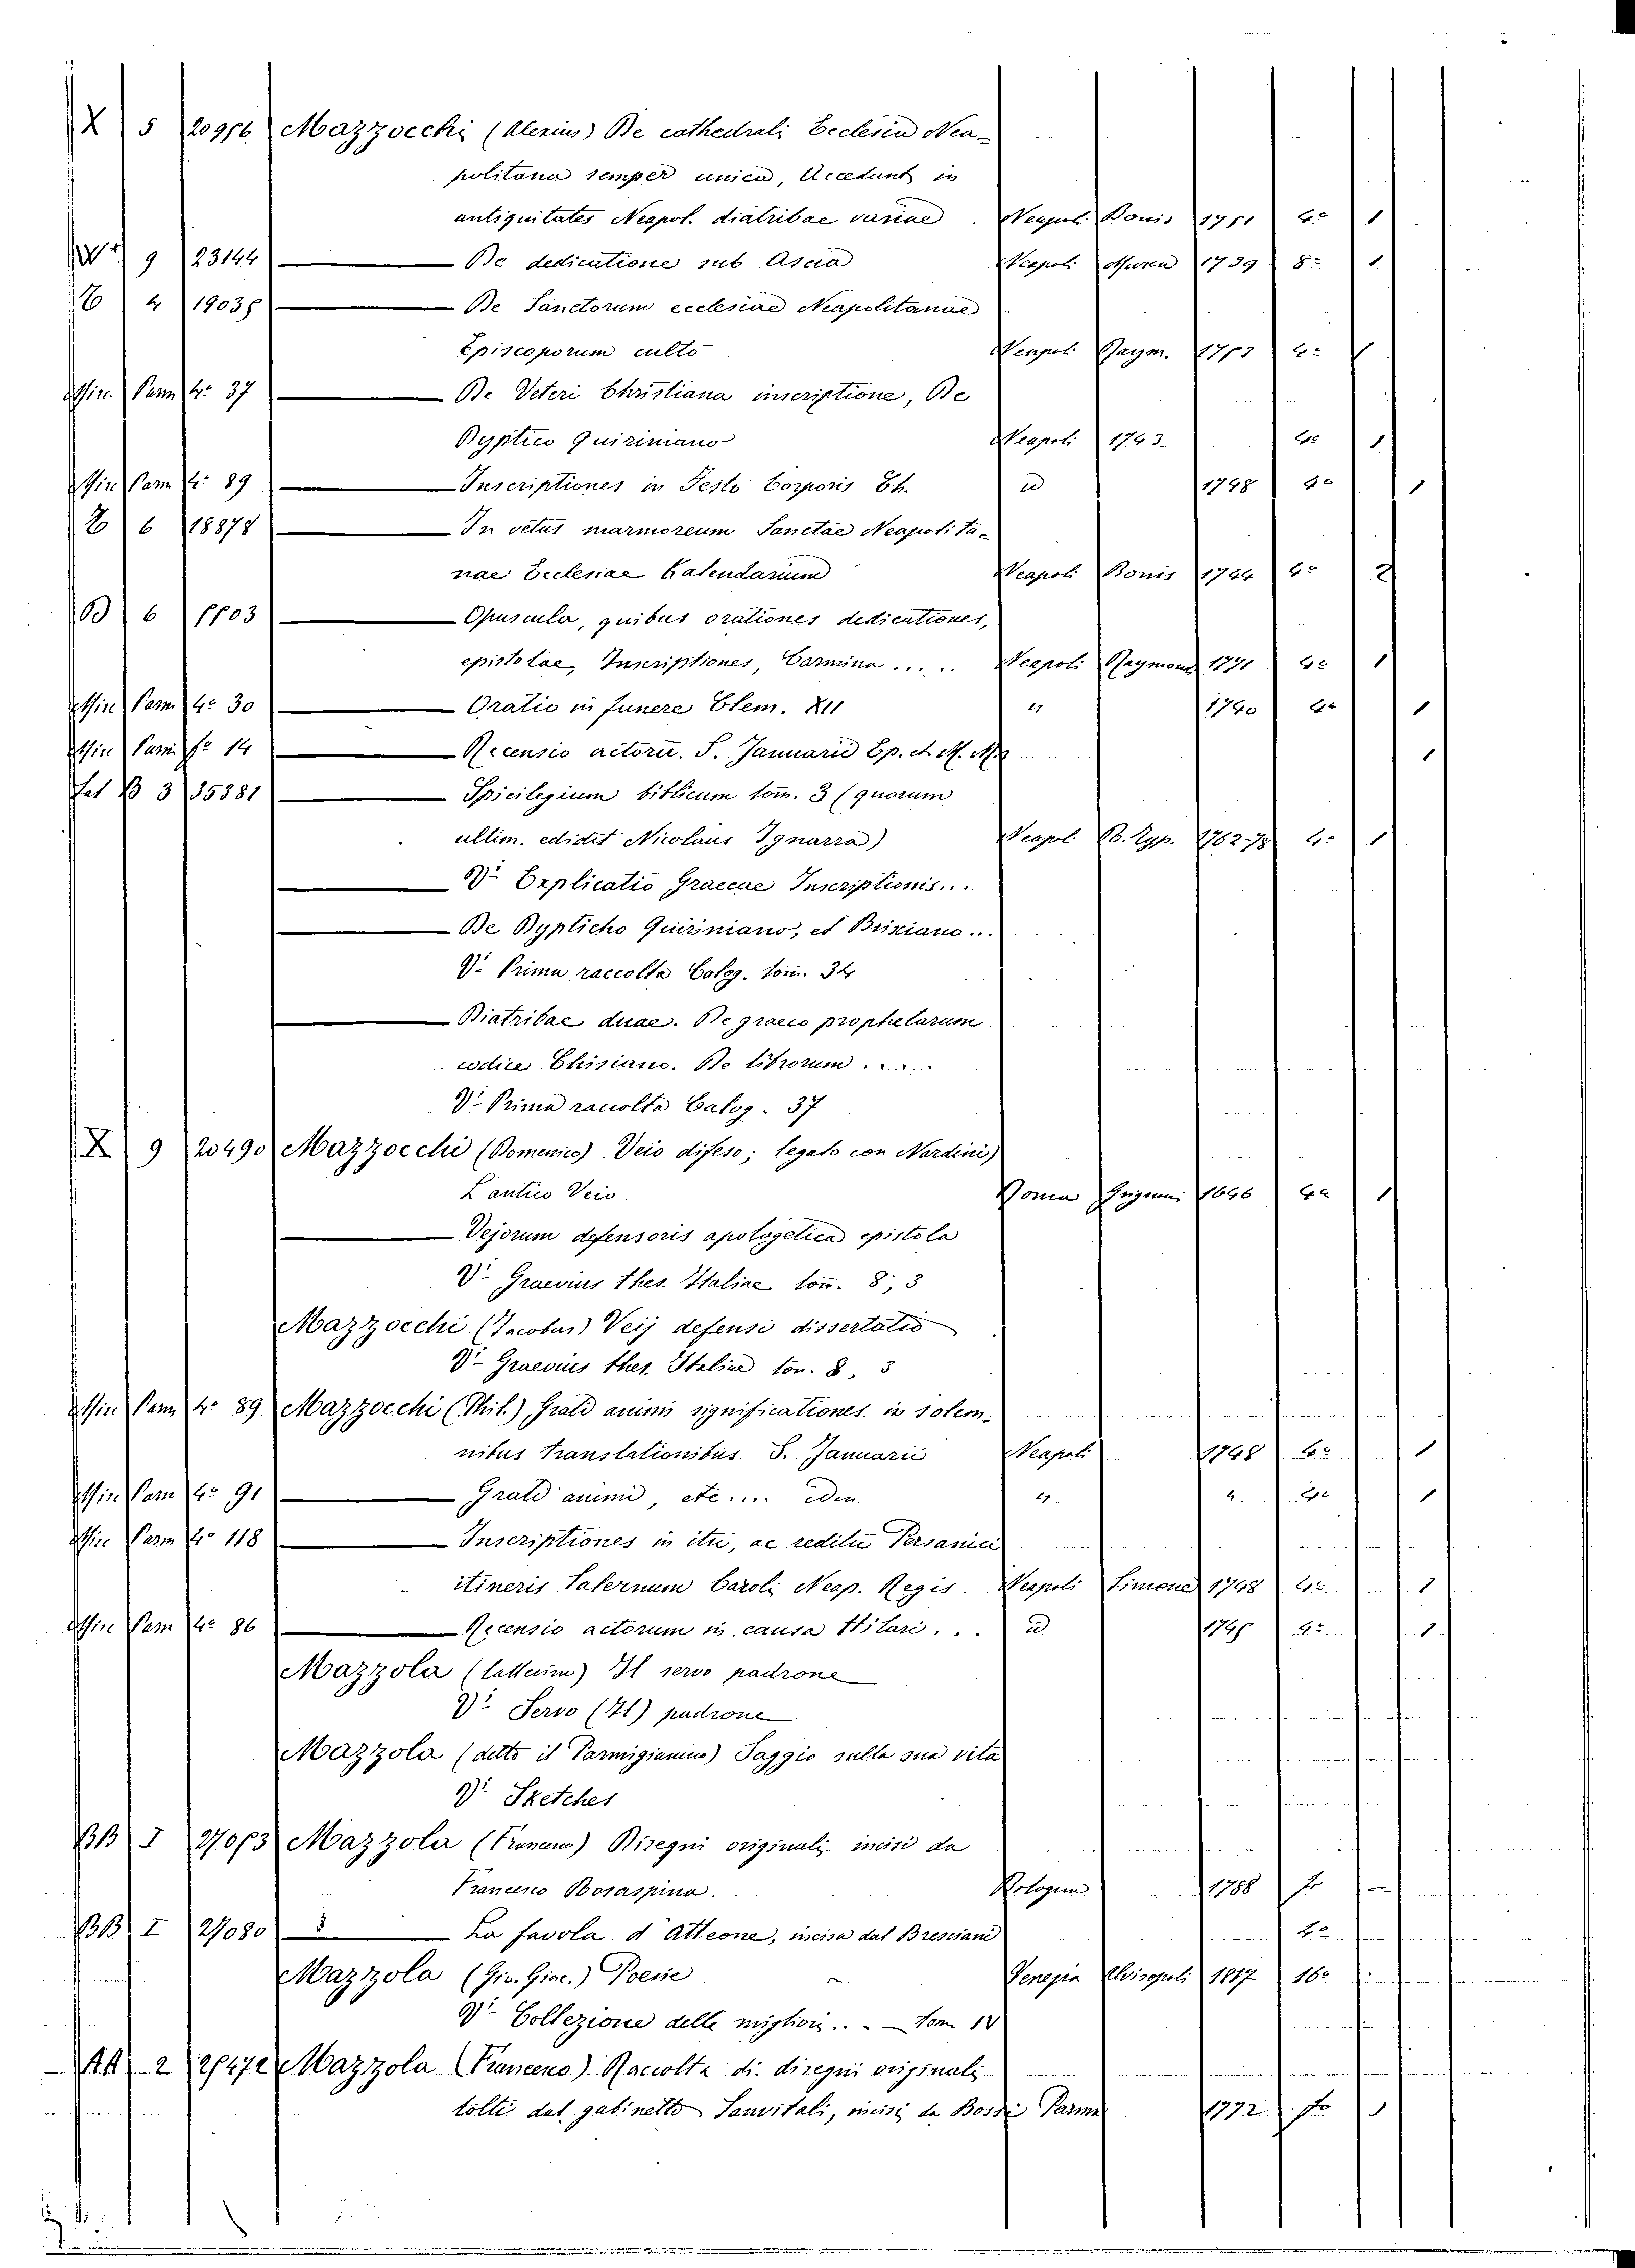 X 5 20956 Mazzocchi (Alexius) De cathedrali Ecclesia Nea-
politana semper unica, Accedunt in
antiquitates Neapol. diatribae variae . Neapol. Bonis 1751 4° 1
9 23144 De dedicatione sub Ascia Neapoli Muzen 1739 8° 1
4 19035 De Sanctorum ecclesiae Neapolitanae
Episcoporum culto Neapol. Raym. 1753 4° 1
Min. Parm 4° 37 De Veteri Christiana inscriptione, De
Dyptico Quiriniano Neapoli 1743. 4° 1
Min. Parm 4° 89 Inscriptiones in Festo Corporis Ch. id 1748 4° 1
6 18878 In vetus marmoreum Sanctae Neapolita-
nae Ecclesiae Kalendarium Neapoli Bonis 1744 4° 2
6 5503 Opuscula, quibus orationes dedicationes,
epistolae, Inscriptiones, Carmina ..... Neapoli Raymond 1771 4° 1
Min. Parm. 4° 30 Oratio in funere Clem. XII " 1740 4° 1
Min. Parm. f° 14 Recensio actorū. S. Januarii Ep. et M. 1
B 3 35381 Spicilegium biblicum tom. 3 (quorum
ultim. edidit Nicolaus Ignarra) Neapol. Typ. 1762-78 4° 1
V. Explicatio Graecae Inscriptionis...
De Dypticho Quiriniano, et Brixiano...
V. Prima raccolta Calog. tom. 34
Diatribae duae. De graeco prophetarum
codice Chisiano. De librorum .....
V. Prima raccolta Calog. 37
X 9 20490 Mazzocchi (Domenico) Veio difeso; legato con Nardini)
L'antico Veio Roma Grignani 1646 4° 1
Vejorum defensoris apologetica epistola
V. Graevius thes. Italiae tom. 8, 3
Mazzocchi (Jacobus) Veij defensi dissertatio
V. Graevius thes. Italiae tom. 8, 3
Min. Parm 4° 89 Mazzocchi (Phil.) Grati animi significationes in solem-
nibus translationibus S. Januarii Neapoli 1748 4° 1
Min Parm 4° 91 Grati animi, etc.... " " 4° 1
Min Parm 4° 118 Inscriptiones in itu, ac reditu Persanici
itineris Salernum Caroli Neap. Regis Neapoli Simone 1748 4° 1
Min Parm 4° 86 Recensio actorum in causa Hilari... id 4° 1
Mazzola (Catterino) Il servo padrone
V. Servo (Il) padrone
Mazzola (detto il Parmigianino) Saggio sulla sua vita
V. Sketches
BB I 27053 Mazzola (Francesco) Disegni originali incisi da
Francesco Rosaspina. Bologna 1788 f°
BB I 27080 La favola d'Atteone, incisa dal Bresciani 4°
Mazzola (Gio. Giac.) Poesie Venezia Alvisopoli 1817 16°
V. Collezione delle migliori... tom IV
AA 2 25472 Mazzola (Francesco) Raccolta di disegni originali
tolti dal gabinetto Sanvitali, incisi da Bossi Parma 1772 f° 1